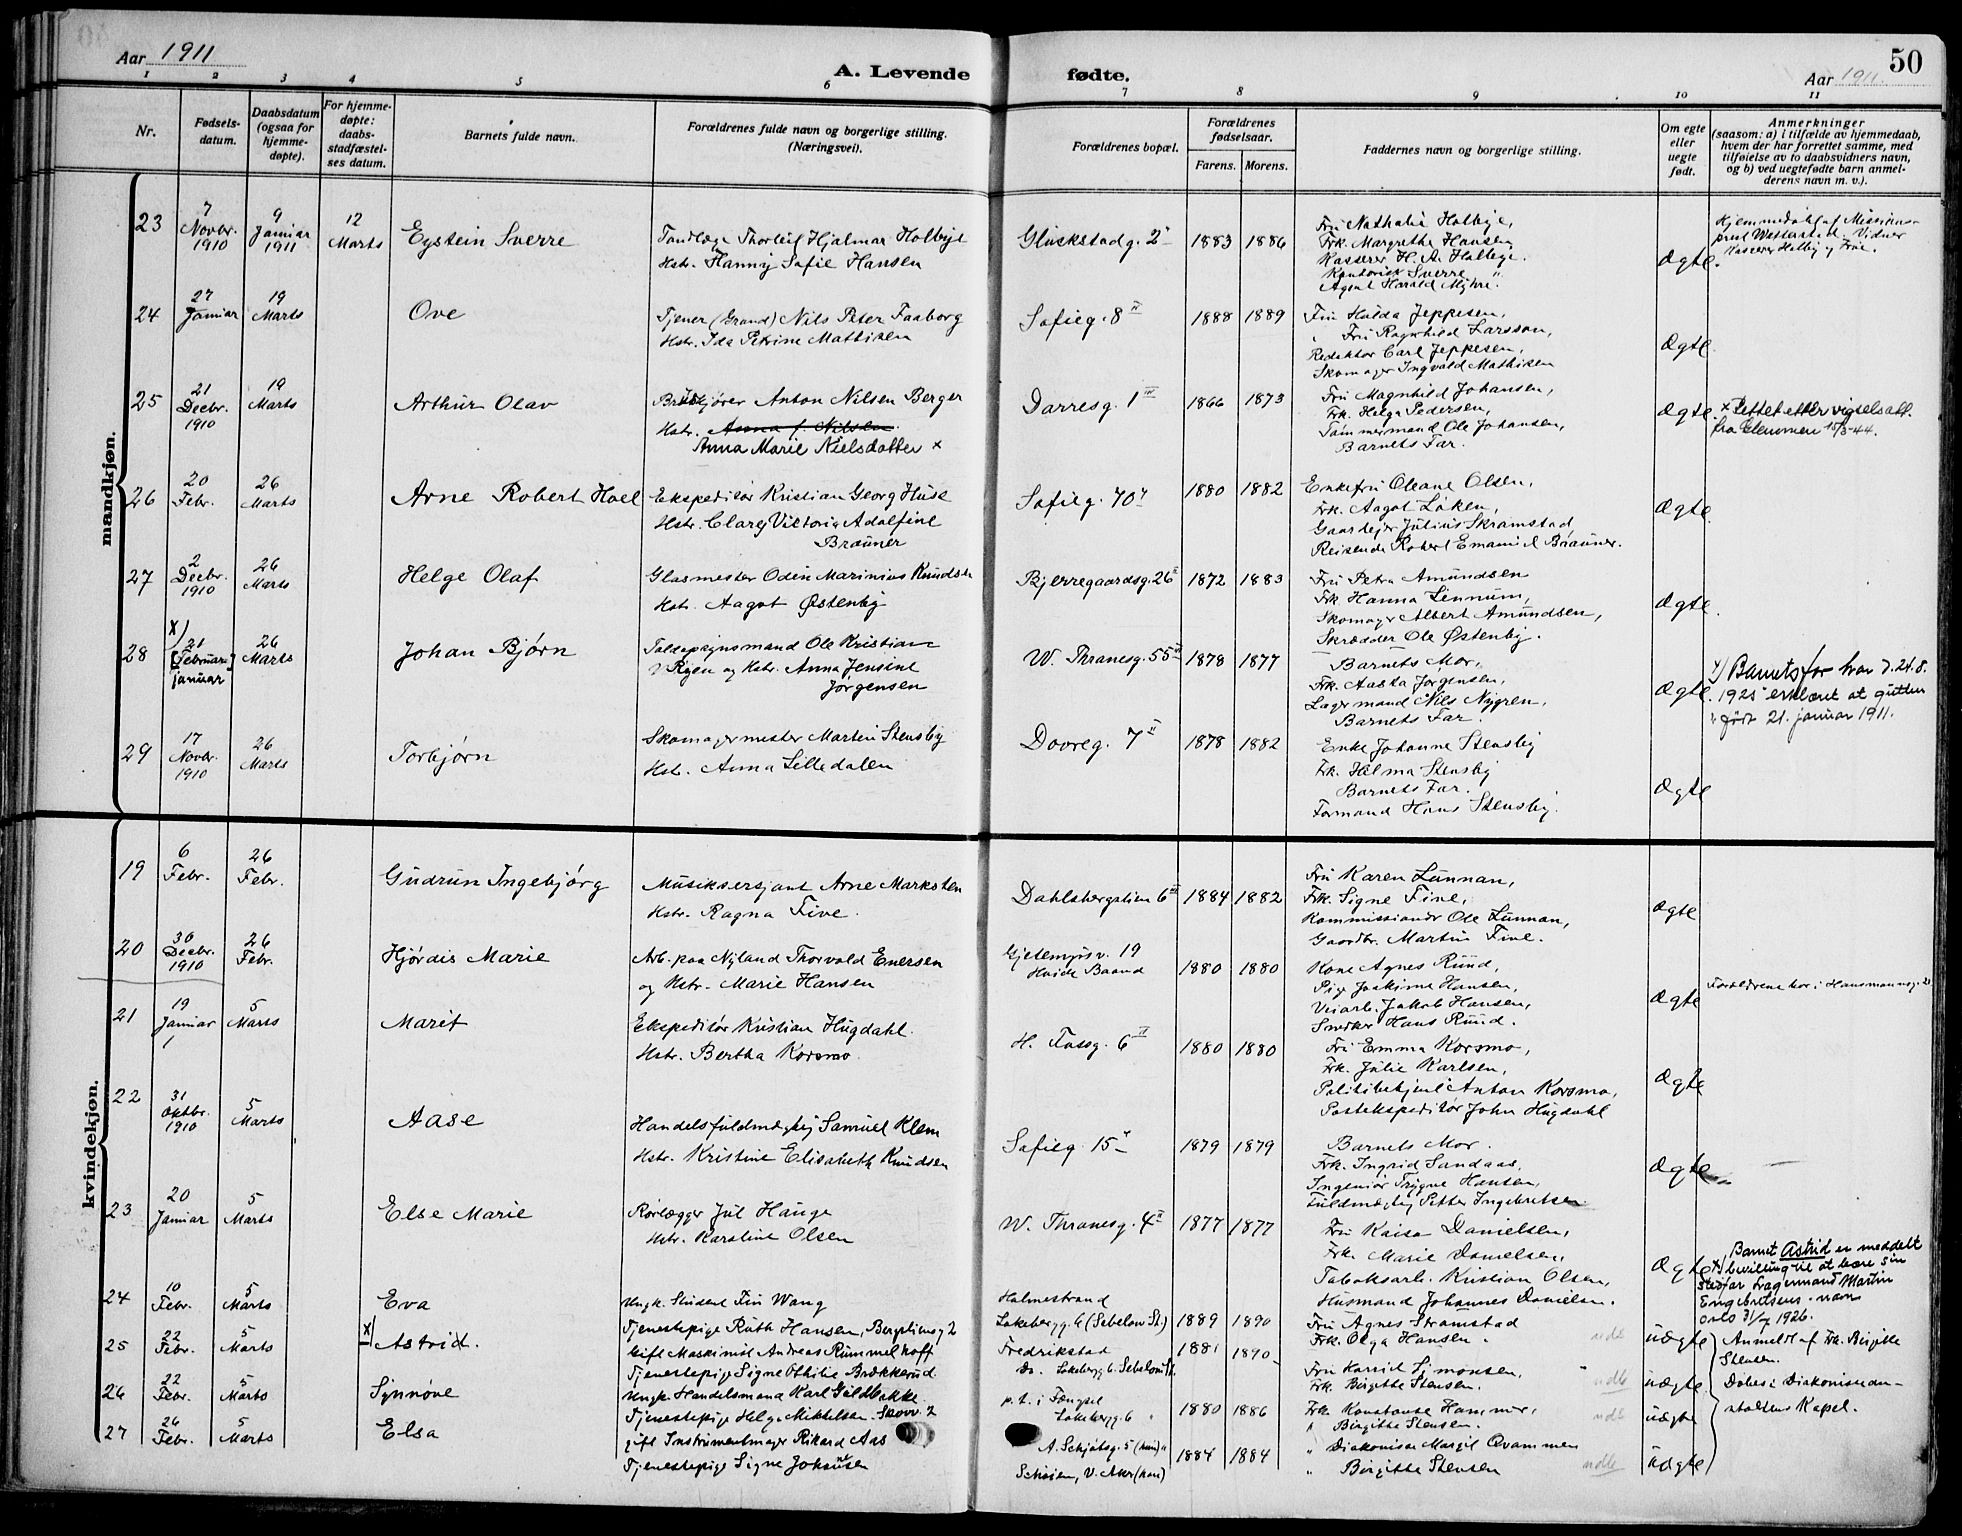 Aar 1911
A. Levende fødte.
Aar 1911.
50
1 2 3 4 5 6 7 8 9 10 11
Nr.
Fødsels-
datum.
Daabsdatum
(ogsaa for
hjemme-
døpte).
For hjemme-
døpte:
daabs-
stadfæstel-
ses datum.
Barnets fulde navn.
Forældrenes fulde navn og borgerlige stilling.
(Næringsvei).
Forældrenes bopæl.
Forældrenes
fødselsaar.
Farens. Morens.
Faddernes navn og borgerlige stilling.
Om egte
eller
uegte
født.
Anmerkninger
(saasom: a) i tilfælde av hjemmedaab,
hvem der har forrettet samme, med
tilføielse av to daabsvidners navn,
og b) ved uegtefødte barn anmel-
derens navn m. v.).
mandkjøn.
23
7
Novbr.
1910
9
Januar
1911
12
Marts
Eystein Sverre
Tandlæge Thorleif Hjalmar Holbye
Hstr. Hanny Sofie Hansen
Gluckstadg. 2
1883 1886
Fru Nathalie Holbye,
Frk. Margrethe Hansen,
Kasserer H. A. Holbye.
Kontorist Sverre "
Agent Harald Myhre.
Ægte.
Hjemmedøbt af Missions-
prest Vidner
Kasserer Holby og Frue.
24
27
Januar
19
Marts
Ove
Tjener (Grand) Nils Peter Faaborg
Hstr. Ida Petrine Mathisen
Sofieg. 8 II
1888 1889
Fru Hulda Jeppesen,
" Fru Ragnhild Larsson,
Redaktør Carl Jeppesen,
Skomager Ingvald Mathisen
Ægte.
25
21
Decbr.
1910
19
Marts
Arthur Olav
Anton Nilsen Berger
Hstr. Anna f. Nilsen
Anna Marie Nielsdatter x
Darresg. 1 III
1866 1873
Fru Magnhild Johansen,
Frk. Helga Pedersen,
Tømmermand Ole Johansen,
Barnets Far.
Ægte.
x Rettet etter vigselsatt.
fra Glemmen 15/5-44.
26
20
Febr.
26
Marts
Arne Robert Hoel
Ekspeditør Kristian Georg Huse
Hstr. Clary Viktoria Adolfine
Brauner
Sofieg. 70
1880 1882
Enkefru Oleane Olsen,
Frk. Aagot Løken,
Gaardejer Julius Skramstad,
Reisende Robert Emanuel Brauner.
Ægte.
27
2
Decbr.
1910
26
Marts
Helge Olaf
Glasmester Odin Marinius Knudsen
Hstr. Aagot Østenby
Bjerregaardsg. 26 II
1872 1883
Fru Petra Amundsen
Frk. Hanna Linnum,
Skomager Albert Amundsen,
Skrædder Ole Østenby.
Ægte.
28
x)
21
[Februar]
januar
26
Marts
Johan Bjørn
Toldopsynsmand Ole Kristian
Ryen og Hstr. Anna Jensine
Jørgensen
W. Thranesg. 55 III
1878 1877
Barnets Mor,
Frk. Aasta Jørgensen,
Lagermand Nils Nygren,
Barnets Far.
Ægte.
x) Barnets far har d. 24.8.
1925 erklæret at gutten
er født 21. januar 1911.
29
17
Novbr.
1910
26
Marts
Torbjørn
Skomagermester Martin Stensby
Hstr. Anna Lilledalen
Dovreg. 7 II
1878 1882
Enke Johanne Stensby
Frk. Helma Stensby
Barnets Far.
Formand Hans Stensby.
Ægte
kvindekjøn.
19
6
Febr.
26
Febr.
Gudrun Ingebjørg
Musiksersjant Arne Marksten
Hstr. Ragna Five.
Dahlsbergstien 6 III
1884 1882
Fru Karen Lunnan,
Frk. Signe Five,
Kommissionær Ole Lunnan,
Gaardbr. Martin Five.
Ægte
20
30
Decbr.
1910
26
Febr.
Hjørdis Marie
Arb. paa Nyland Thorvald Enersen
og Hstr. Marie Hansen
Gjetemyrsv. 19
1880 1880
Kone Agnes Ruud,
Pige Joakime Hansen,
Veiarb. Jakob Hansen,
Snekker Hans Ruud.
Ægte
Forældrene bor i Hausmannsg. 21
21
19
Januar
5
Marts
Marit
Ekspeditør Kristian Hugdahl.
Hstr. Bertha Korsmo.
H. Fossg. 6 II
1880 1880
Fru Emma Korsmo,
Frk. Julie Karlsen,
Politibetjent Anton Korsmo,
Postekspeditør John Hugdahl
Ægte
22
31
Oktbr.
1910
5
Marts
Aase
Handelsfuldmægtig Samuel Klem
Hstr. Kristine Elisabeth Knudsen
Sofieg. 15
1879 1879
Barnets Mor.
Frk. Ingrid Sandaas,
Ingeniør Trygve Hansen,
Fuldmægtig Petter Ingebretsen.
Ægte
23
20
Januar
5
Marts
Else Marie
Rørlægger Jul Hauge
Hstr. Karoline Olsen
W. Thranesg. 4 II
1877 1877
Fru Kaisa Danielsen,
Frk. Marie Danielsen,
Tobaksarb. Kristian Olsen,
Husmand Johannes Danielsen.
Ægte
24
10
Febr.
5
Marts
Eva
Ungk. Student Finn Wang
Tjenestepige Ruth Hansen, Bergliensg 2
Holmestrand
Lakebergg. 6 (Sebelow St.)
1889 1890
Fru Agnes Strømstad
Frk. Olga Hansen
udb
uægte
x) Barnet Astrid er meddelt
bevilling til at bære sin
stedfar Lagermand Martin
Engebretsens navn
Oslo 31/7 1926.
25
22
Febr.
5
Marts
x)
Astrid.
Gift Maskinist Andreas Rummelhoff
Tjenestepige Signe Othilie Brækkerud
Fredrikstad
Do. Lakebergg. 6. Sebelow St.
1881 1890
Fru Harrid Simonsen,
Frk. Birgitte Stensen.
udb
uægte
Anmeldt af Frk. Birgitte
Stensen.
Døbes i Diakonissean-
staltens Kapel.
26
22
Febr.
5
Marts
Synnøve
Ungk. Handelsmand Karl Guldbakke.
Tjenestepige Helga Mikkelsen. Skovv. 2
p. t. i Fængsel
Lakebergg. 6 "
1880 1886
Frk. Konstanse Hammer,
" Birgitte Stensen.
udb
uægte
27
26
Febr.
5
Marts
Elsa
gift Instrumentmager Rikard Aas
Tjenestepige Signe Johansen
A. Schjøtsg. 5 (hun)
Schøien, V. Aker (han)
1884 1884
" Diakonisse Margit Qvammen
" Birgitte Stensen
udb
uægte